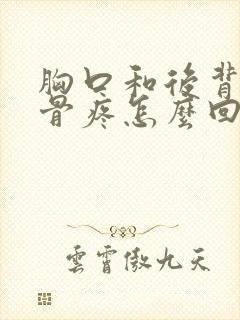 胸口和後背
骨疼怎麼回
雲霄傲九天